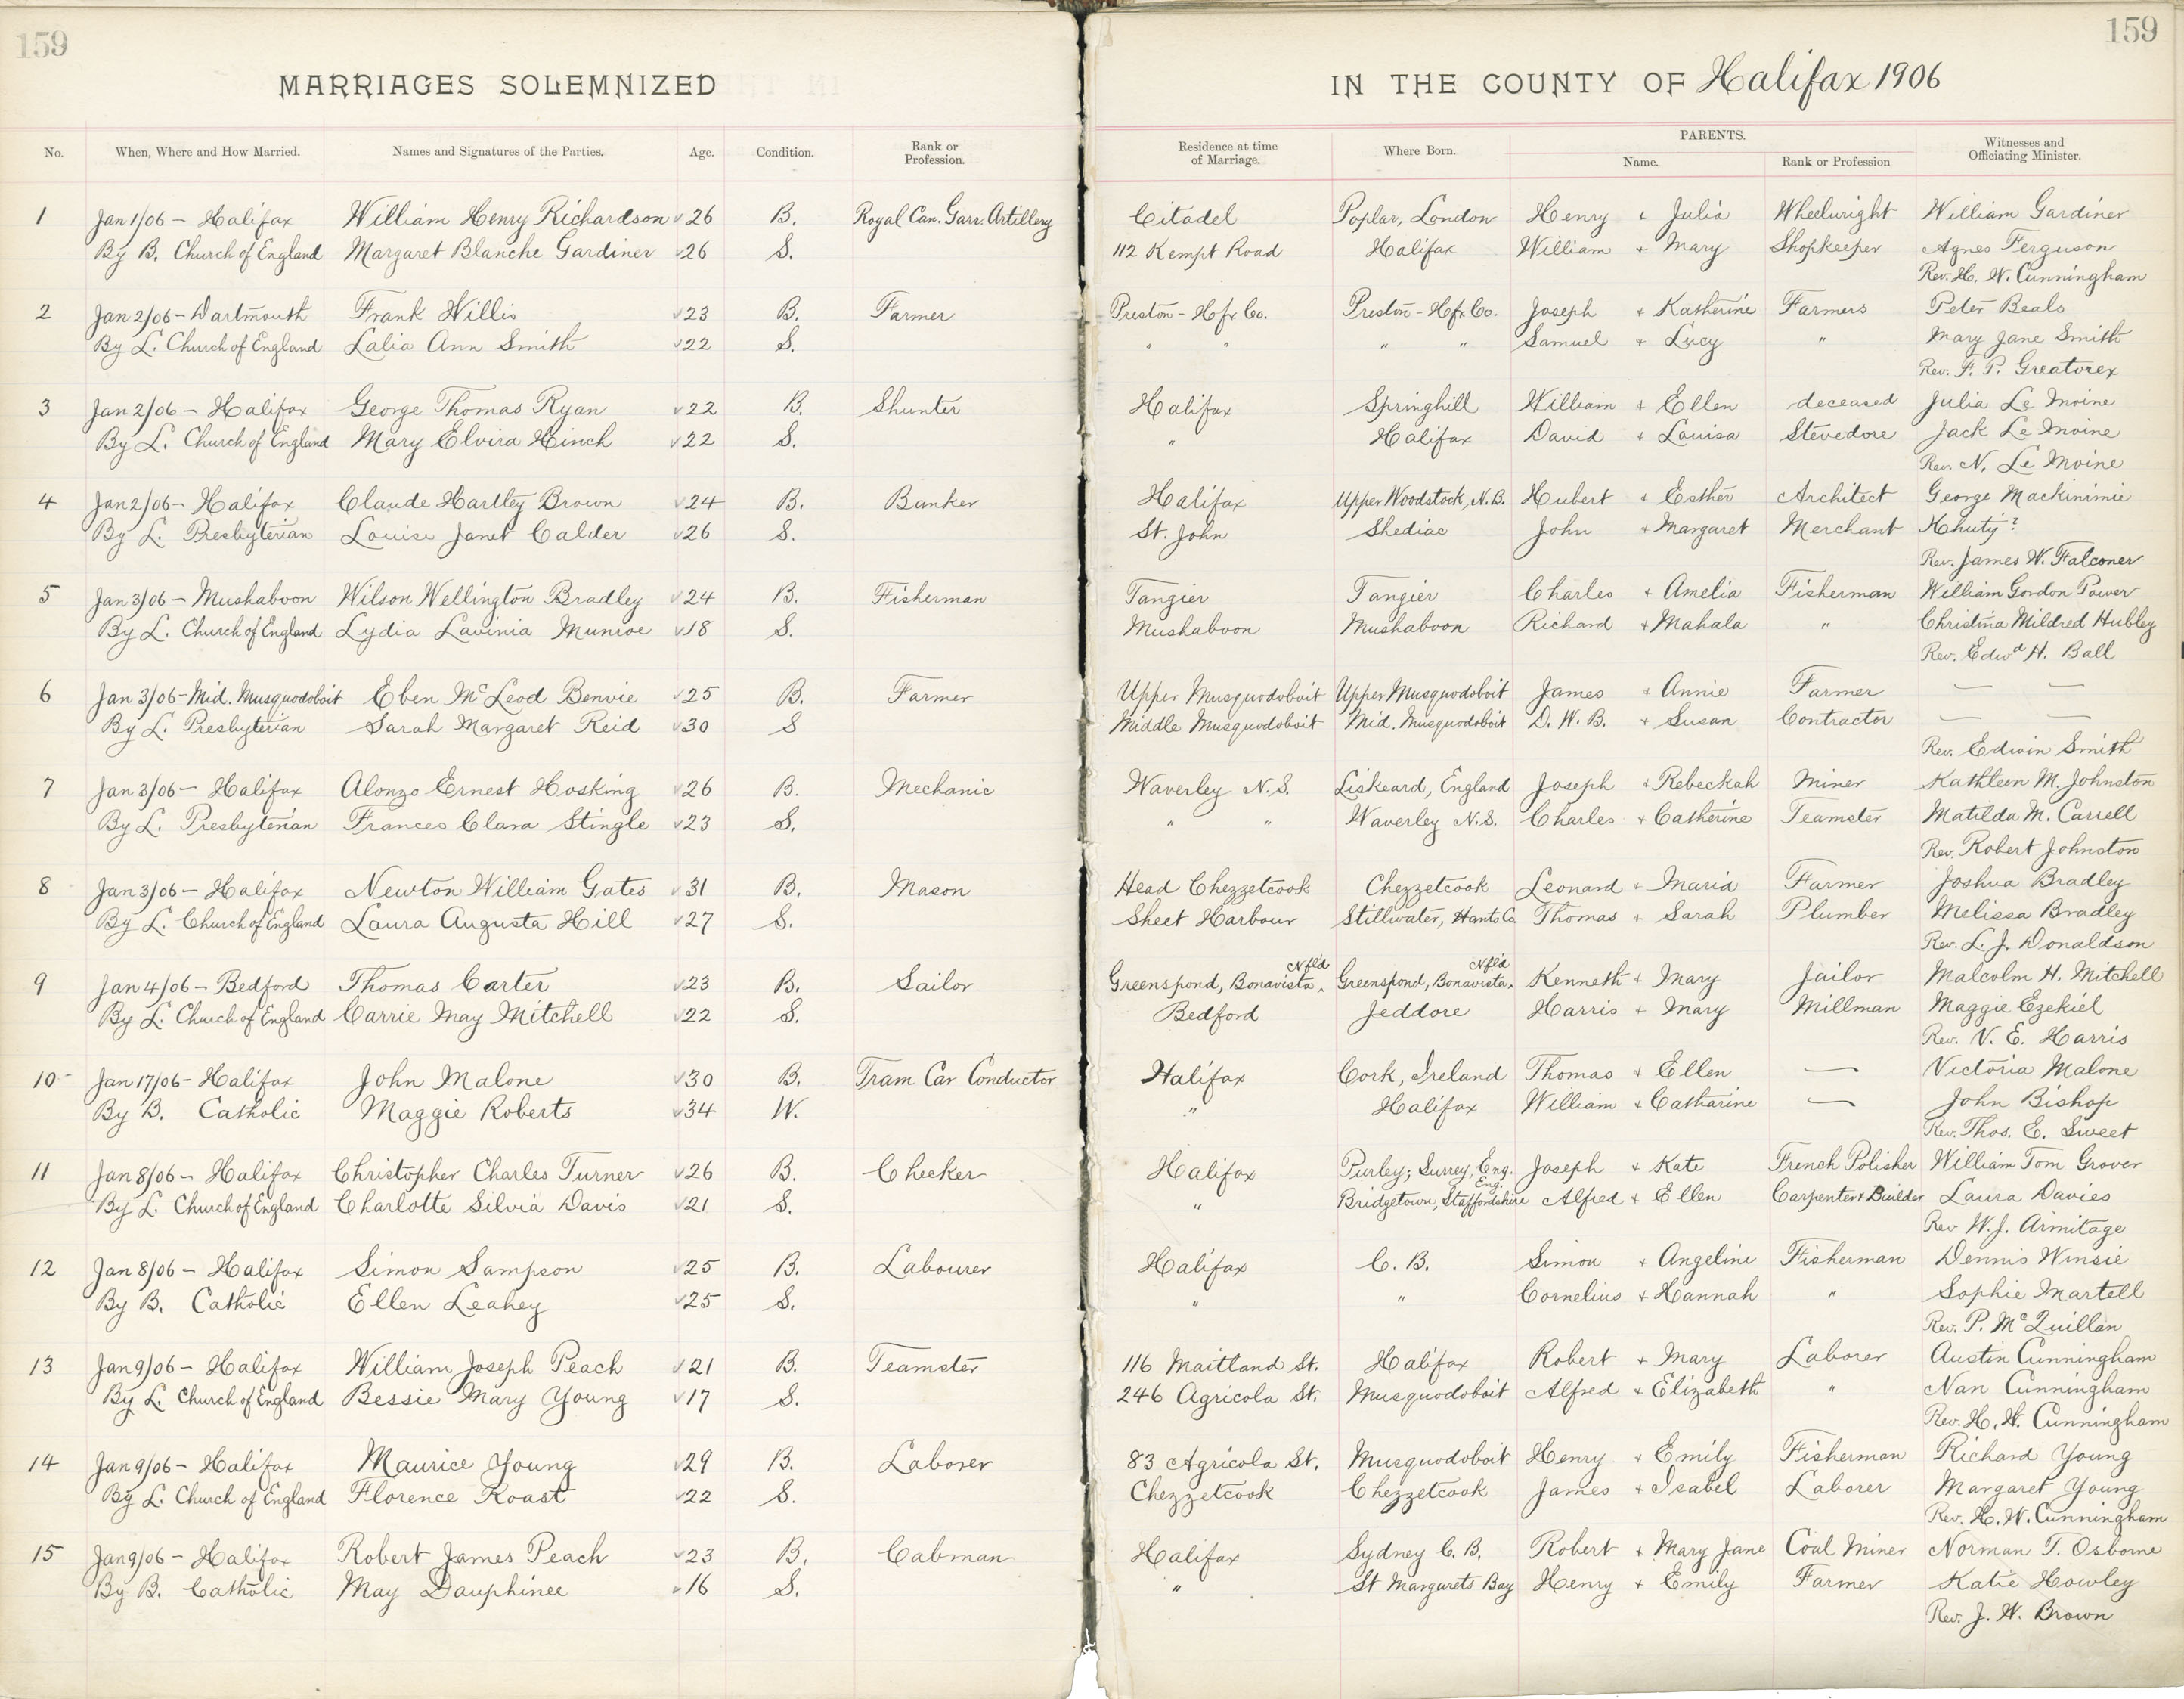 159
159
MARRIAGES SOLEMNIZED IN THE COUNTY OF Halifax 1906
No. When, Where and How Married. Names and Signatures of the Parties. Age. Condition. Rank or Profession. Residence at time of Marriage. Where Born. PARENTS. Name. Rank or Profession Witnesses and Officiating Minister.
1 Jan 1/06 – Halifax William Henry Richardson 26 B. Royal Can. Garr. Artillery Citadel Poplar, London Henry & Julia Wheelwright William Gardiner
By B. Church of England Margaret Blanche Gardiner 26 S. 112 Kempt Road Halifax William + Mary Shopkeeper Agnes Ferguson
Rev. H. W. Cunningham
2 Jan 2/06 – Dartmouth Frank Willis 23 B. Farmer Preston – Hfx Co. Preston – Hfx Co. Joseph + Katherine Farmers Peter Beals
By L. Church of England Lalia Ann Smith 22 S. " " " " Samuel + Lucy " Mary Jane Smith
Rev. F. P. Greatorex
3 Jan 2/06 – Halifax George Thomas Ryan 22 B. Shunter Halifax Springhill William + Ellen deceased Julia Le Moine
By L. Church of England Mary Elvira Hinch 22 S. " Halifax David + Louisa Stevedore Jack Le Moine
Rev. N. Le Moine
4 Jan 2/06 – Halifax Claude Hartley Brown 24 B. Banker Halifax Upper Woodstock, N.B. Hubert + Esther Architect George Mackinimie
By L. Presbyterian Louise Janet Calder 26 S. St. John Shediac John + Margaret Merchant Khuty?
Rev. James W. Falconer
5 Jan 3/06 – Mushaboon Wilson Wellington Bradley 24 B. Fisherman Tangier Tangier Charles + Amelia Fisherman William Gordon Power
By L. Church of England Lydia Lavinia Munroe 18 S. Mushaboon Mushaboon Richard + Mahala " Christina Mildred Hubley
Rev. Edwd H. Ball
6 Jan 3/06 – Mid. Musquodoboit Eben McLeod Benvie 25 B. Farmer Upper Musquodoboit Upper Musquodoboit James + Annie Farmer — —
By L. Presbyterian Sarah Margaret Reid 30 S Middle Musquodoboit Mid. Musquodoboit D. W. B. + Susan Contractor — —
Rev. Edwin Smith
7 Jan 3/06 – Halifax Alonzo Ernest Hosking 26 B. Mechanic Waverley N.S. Liskeard, England Joseph + Rebeckah Miner Kathleen M. Johnston
By L. Presbyterian Frances Clara Stingle 23 S. " " Waverley N.S. Charles + Catherine Teamster Matilda M. Carrell
Rev. Robert Johnston
8 Jan 3/06 – Halifax Newton William Gates 31 B. Mason Head Chezzetcook Chezzetcook Leonard + Maria Farmer Joshua Bradley
By L. Church of England Laura Augusta Hill 27 S. Sheet Harbour Stillwater, Hants Co. Thomas + Sarah Plumber Melissa Bradley
Rev. L. J. Donaldson
9 Jan 4/06 – Bedford Thomas Carter 23 B. Sailor Greenspond, Bonavista, Nfl'd Greenspond, Bonavista, Nfl'd Kenneth + Mary Jailor Malcolm H. Mitchell
By L. Church of England Carrie May Mitchell 22 S. Bedford Jeddore Harris + Mary Millman Maggie Ezekiel
Rev. V. E. Harris
10 Jan 17/06 – Halifax John Malone 30 B. Tram Car Conductor Halifax Cork, Ireland Thomas + Ellen — Victoria Malone
By B. Catholic Maggie Roberts 34 W. " Halifax William + Catharine — John Bishop
Rev. Thos. E. Sweet
11 Jan 8/06 – Halifax Christopher Charles Turner 26 B. Checker Halifax Purley, Surrey, Eng. Joseph + Kate French Polisher William Tom Grover
By L. Church of England Charlotte Silvia Davis 21 S. " Bridgetown, Staffordshire Eng. Alfred + Ellen Carpenter + Builder Laura Davies
Rev W. J. Armitage
12 Jan 8/06 – Halifax Simon Sampson 25 B. Labourer Halifax C. B. Simon + Angeline Fisherman Dennis Winsie
By B. Catholic Ellen Leahey 25 S. " " Cornelius + Hannah " Sophie Martell
Rev. P. McQuillan
13 Jan 9/06 – Halifax William Joseph Peach 21 B. Teamster 116 Maitland St. Halifax Robert + Mary Laborer Austin Cunningham
By L. Church of England Bessie Mary Young 17 S. 246 Agricola St. Musquodoboit Alfred + Elizabeth " Nan Cunningham
Rev. H. W. Cunningham
14 Jan 9/06 – Halifax Maurice Young 29 B. Laborer 83 Agricola St. Musquodoboit Henry + Emily Fisherman Richard Young
By L. Church of England Florence Roast 22 S. Chezzetcook Chezzetcook James + Isabel Laborer Margaret Young
Rev. H. W. Cunningham
15 Jan 9/06 – Halifax Robert James Peach 23 B. Cabman Halifax Sydney C. B. Robert + Mary Jane Coal Miner Norman T. Osborne
By B. Catholic May Dauphinee 16 S. " St Margarets Bay Henry + Emily Farmer Katie Howley
Rev. J. W. Brown